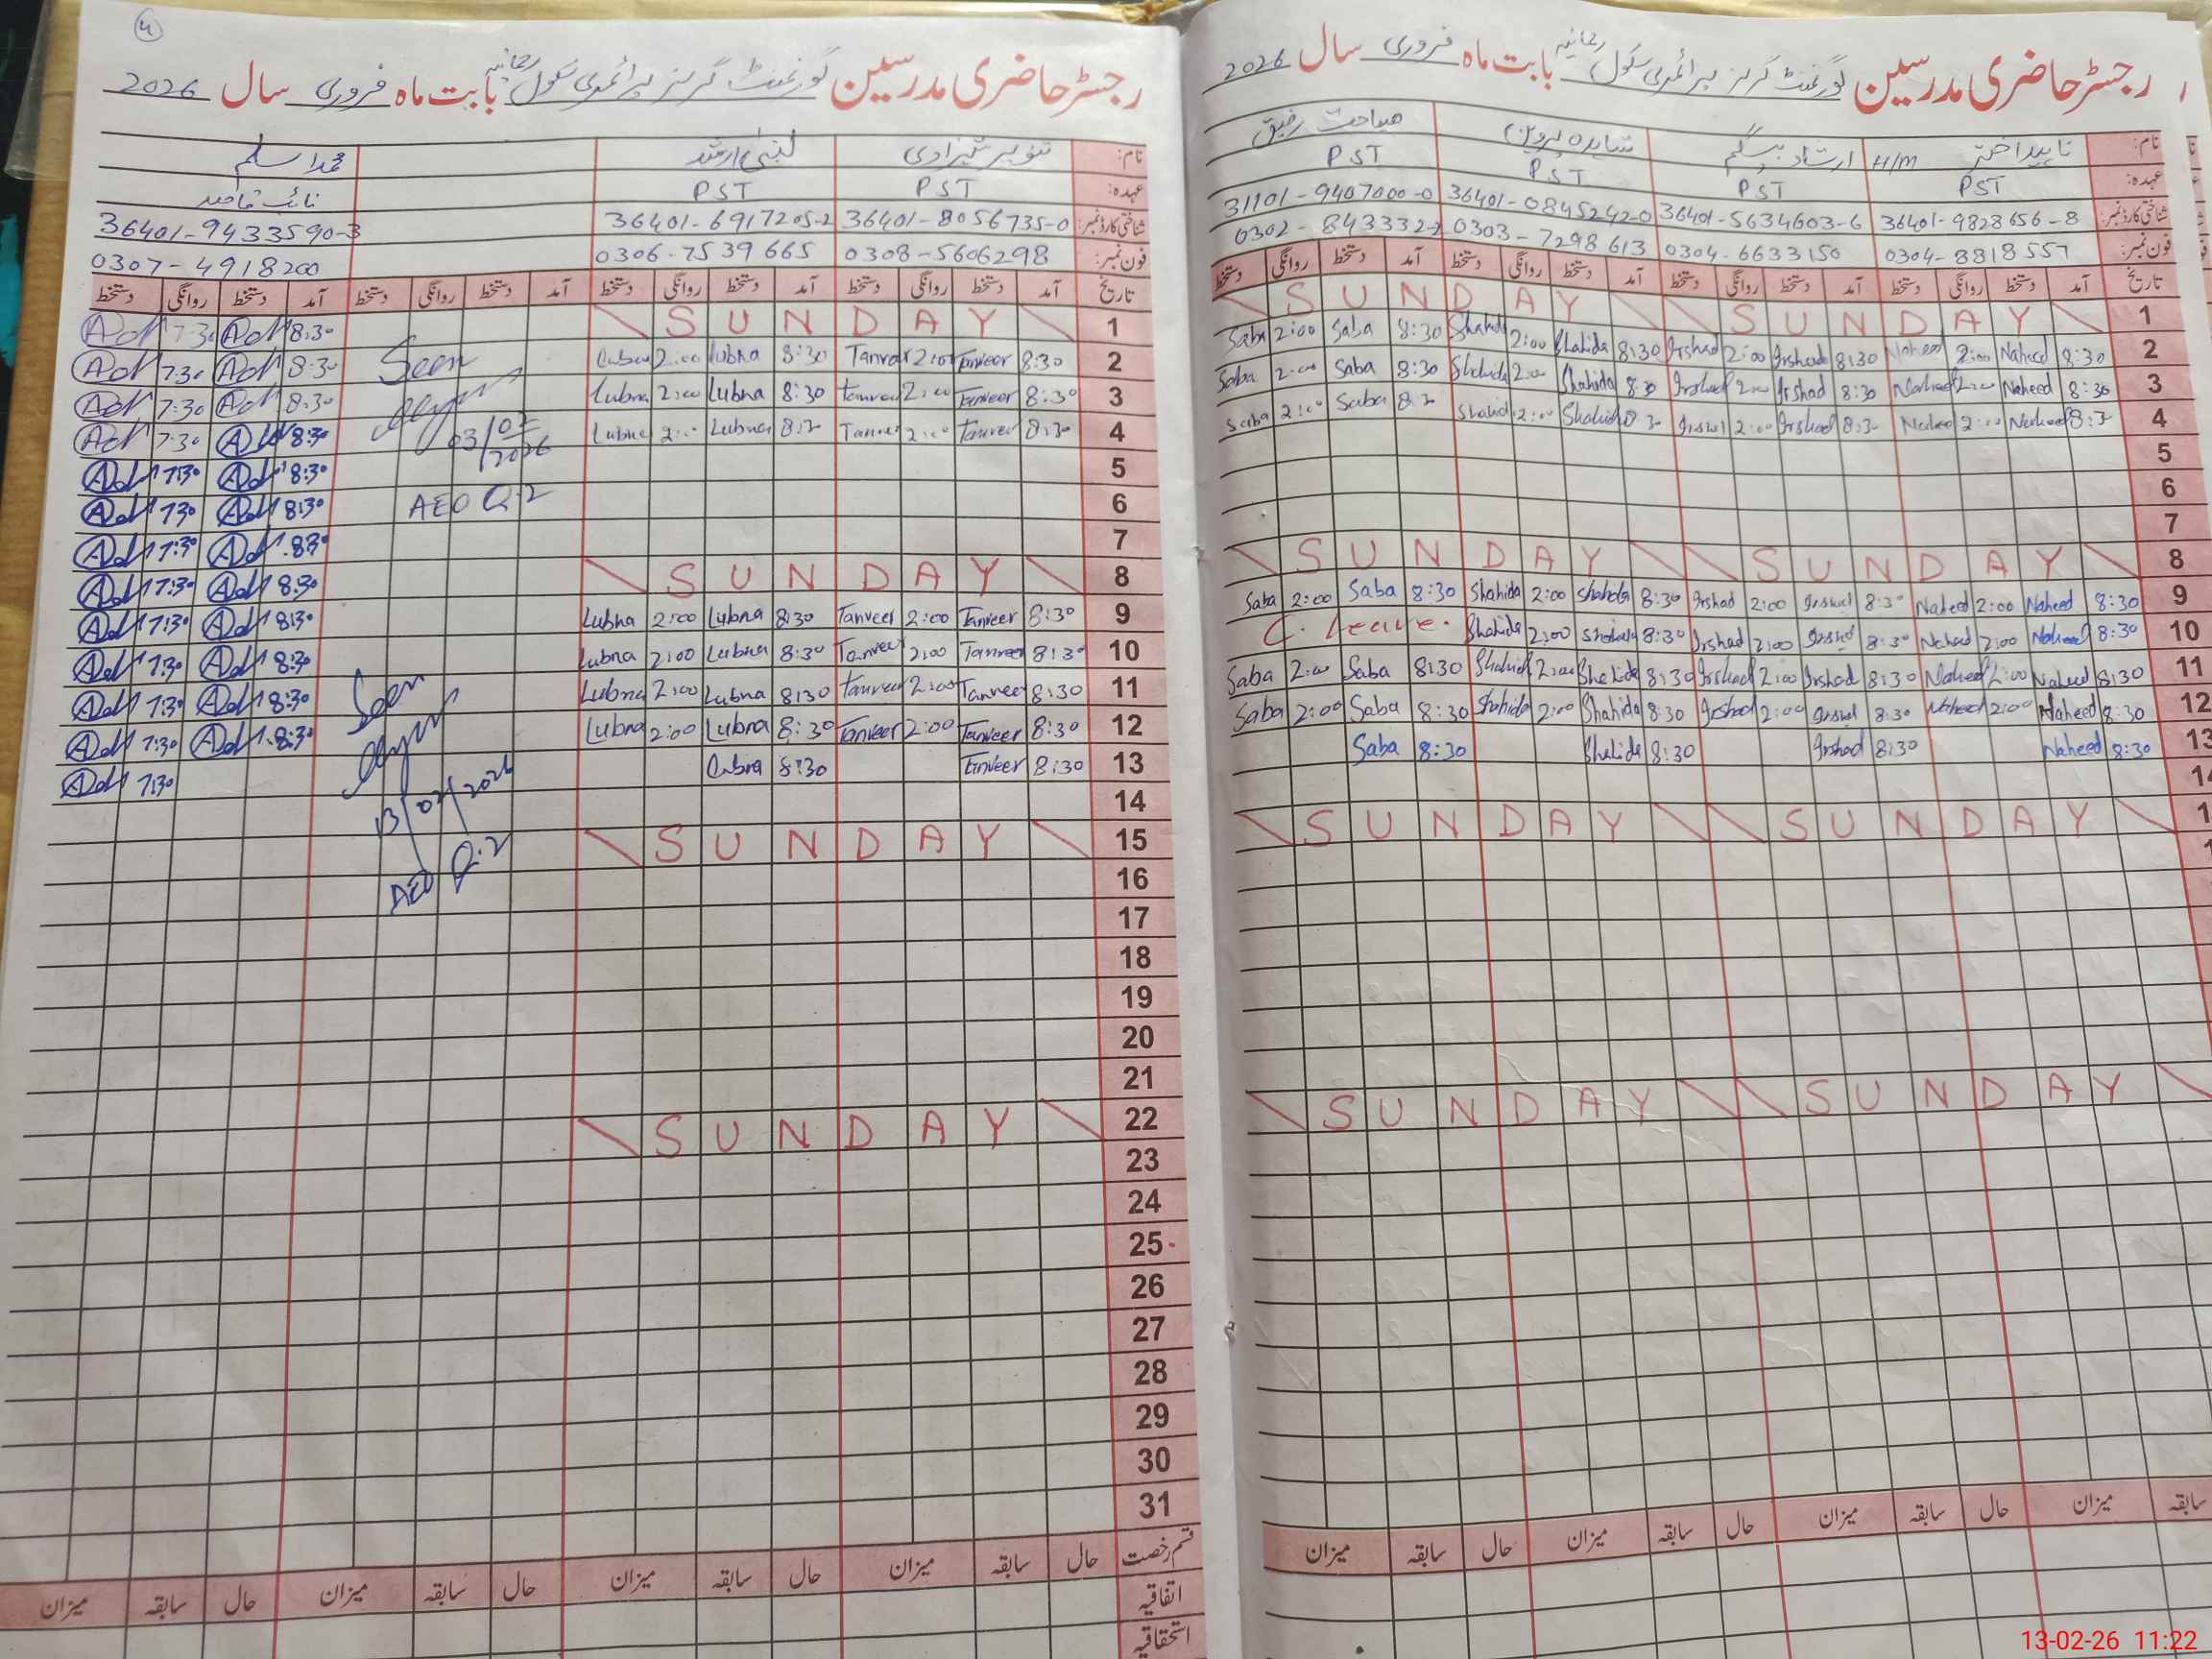 رجسٹر حاضری مدرسین گورنمنٹ گرلز پرائمری سکول رحمانیہ بابت ماہ فروری سال 2026
نام: ناہید اختر H/M ارشاد بیگم شاہدہ پروین صباحت رفیق
عہدہ: PST PST PST PST
شناختی کارڈ نمبر: 36401-9828656-8 36401-5634603-6 36401-0845242-0 31101-9407000-0
فون نمبر: 0304-8818557 0304-6633150 0303-7298613 0302-8433322
تاریخ آمد دستخط روانگی دستخط آمد دستخط روانگی دستخط آمد دستخط روانگی دستخط آمد دستخط روانگی دستخط
1 SUNDAY SUNDAY
2 8:30 Naheed 2:00 Naheed 8:30 Irshad 2:00 Irshad 8:30 Shahida 2:00 Shahida 8:30 Saba 2:00 Saba
3 8:30 Naheed 2:00 Naheed 8:30 Irshad 2:00 Irshad 8:30 Shahida 2:00 Shahida 8:30 Saba 2:00 Saba
4 8:30 Naheed 2:00 Naheed 8:30 Irshad 2:00 Irshad 8:30 Shahida 2:00 Shahid 8:30 Saba 2:00 Saba
5
6
7
8 SUNDAY SUNDAY
9 8:30 Naheed 2:00 Naheed 8:30 Irshad 2:00 Irshad 8:30 Shahida 2:00 Shahida 8:30 Saba 2:00 Saba
10 8:30 Naheed 2:00 Naheed 8:30 Irshad 2:00 Irshad 8:30 Shahida 2:00 Shahida C. Leave.
11 8:30 Naheed 2:00 Naheed 8:30 Irshad 2:00 Irshad 8:30 Shahida 2:00 Shahida 8:30 Saba 2:00 Saba
12 8:30 Naheed 2:00 Naheed 8:30 Irshad 2:00 Irshad 8:30 Shahida 2:00 Shahida 8:30 Saba 2:00 Saba
13 8:30 Naheed 8:30 Irshad 8:30 Shahida 8:30 Saba
14
SUNDAY SUNDAY
SUNDAY SUNDAY
سابقہ میزان حال سابقہ میزان حال سابقہ میزان حال سابقہ میزان
13-02-26 11:22
4
رجسٹر حاضری مدرسین گورنمنٹ گرلز پرائمری سکول رحمانیہ بابت ماہ فروری سال 2026
نام: تنویر شہزادی لبنیٰ ارشد محمد اسلم
عہدہ: PST PST نائب قاصد
شناختی کارڈ نمبر: 36401-8056735-0 36401-6917205-2 36401-9433590-3
فون نمبر: 0308-5606298 0306-7539665 0307-4918200
تاریخ آمد دستخط روانگی دستخط آمد دستخط روانگی دستخط آمد دستخط روانگی دستخط آمد دستخط روانگی دستخط
1 SUNDAY 8:30 7:30
2 8:30 Tanveer 2:00 Tanveer 8:30 Lubna 2:00 Lubna Seen 8:30 7:30
3 8:30 Tanveer 2:00 Tanveer 8:30 Lubna 2:00 Lubna 8:30 7:30
4 8:30 Tanveer 2:00 Tanveer 8:30 Lubna 2:00 Lubna 03/02/2026 8:30 7:30
5 8:30 7:30
6 AEO Q-2 8:30 7:30
7 8:30 7:30
8 SUNDAY 8:30 7:30
9 8:30 Tanveer 2:00 Tanveer 8:30 Lubna 2:00 Lubna 8:30 7:30
10 8:30 Tanveer 2:00 Tanveer 8:30 Lubna 2:00 Lubna 8:30 7:30
11 8:30 Tanveer 2:00 Tanveer 8:30 Lubna 2:00 Lubna Seen 8:30 7:30
12 8:30 Tanveer 2:00 Tanveer 8:30 Lubna 2:00 Lubna 8:30 7:30
13 8:30 Tanveer 8:30 Lubna 7:30
14 13/02/2026
15 SUNDAY
16 AEO Q-2
17
18
19
20
21
22 SUNDAY
23
24
25
26
27
28
29
30
31
قسم رخصت حال سابقہ میزان حال سابقہ میزان حال سابقہ میزان حال سابقہ میزان
اتفاقیہ
استحقاقیہ